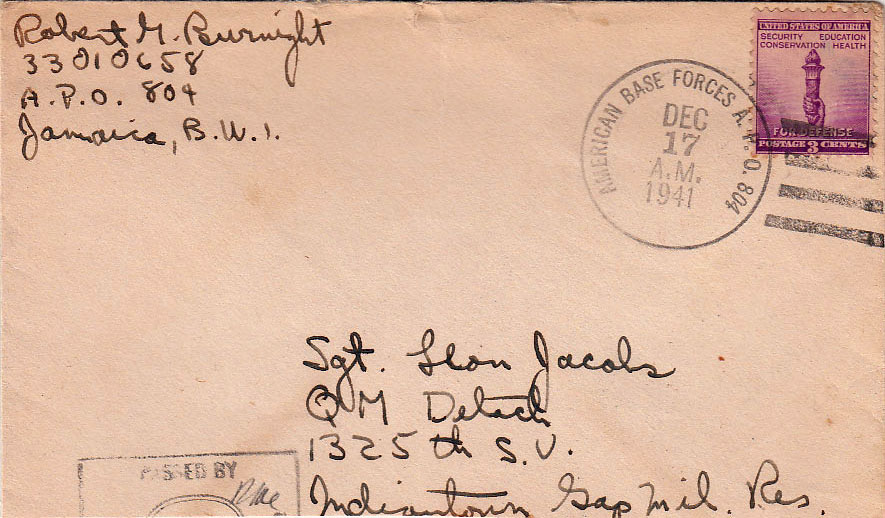 Robert M. Burnight
33010658
A.P.O. 804
Jamaica, B.W.I.
UNITED STATES OF AMERICA
SECURITY EDUCATION
CONSERVATION HEALTH
FOR DEFENSE
POSTAGE 3 CENTS
AMERICAN BASE FORCES A.P.O. 804
DEC
17
A.M.
1941
Sgt. Leon Jacobs
QM Detach
1325th S.U.
Indiantown Gap Mil. Res.
PASSED BY